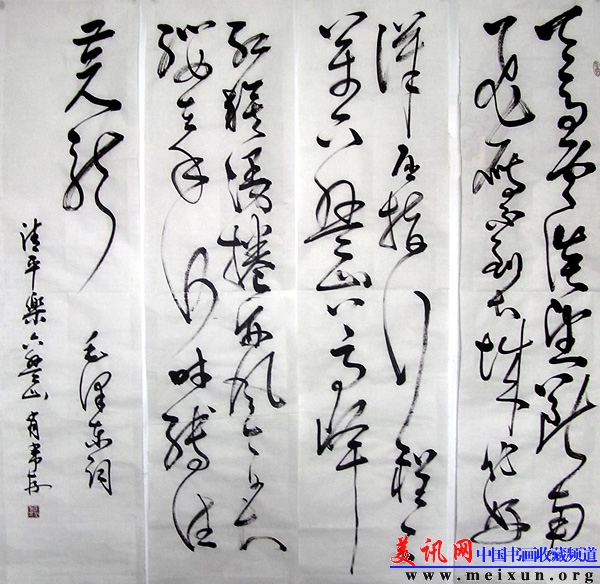 天高雲淡望斷南
飛雁不到長城非好
漢屈指行程二
萬六盤山上高峰
紅旗漫捲西風今日長
纓在手何時縛住
蒼龍
毛澤東詞
清平樂六盤山
美讯网 中国书画收藏频道
www.meixun.org